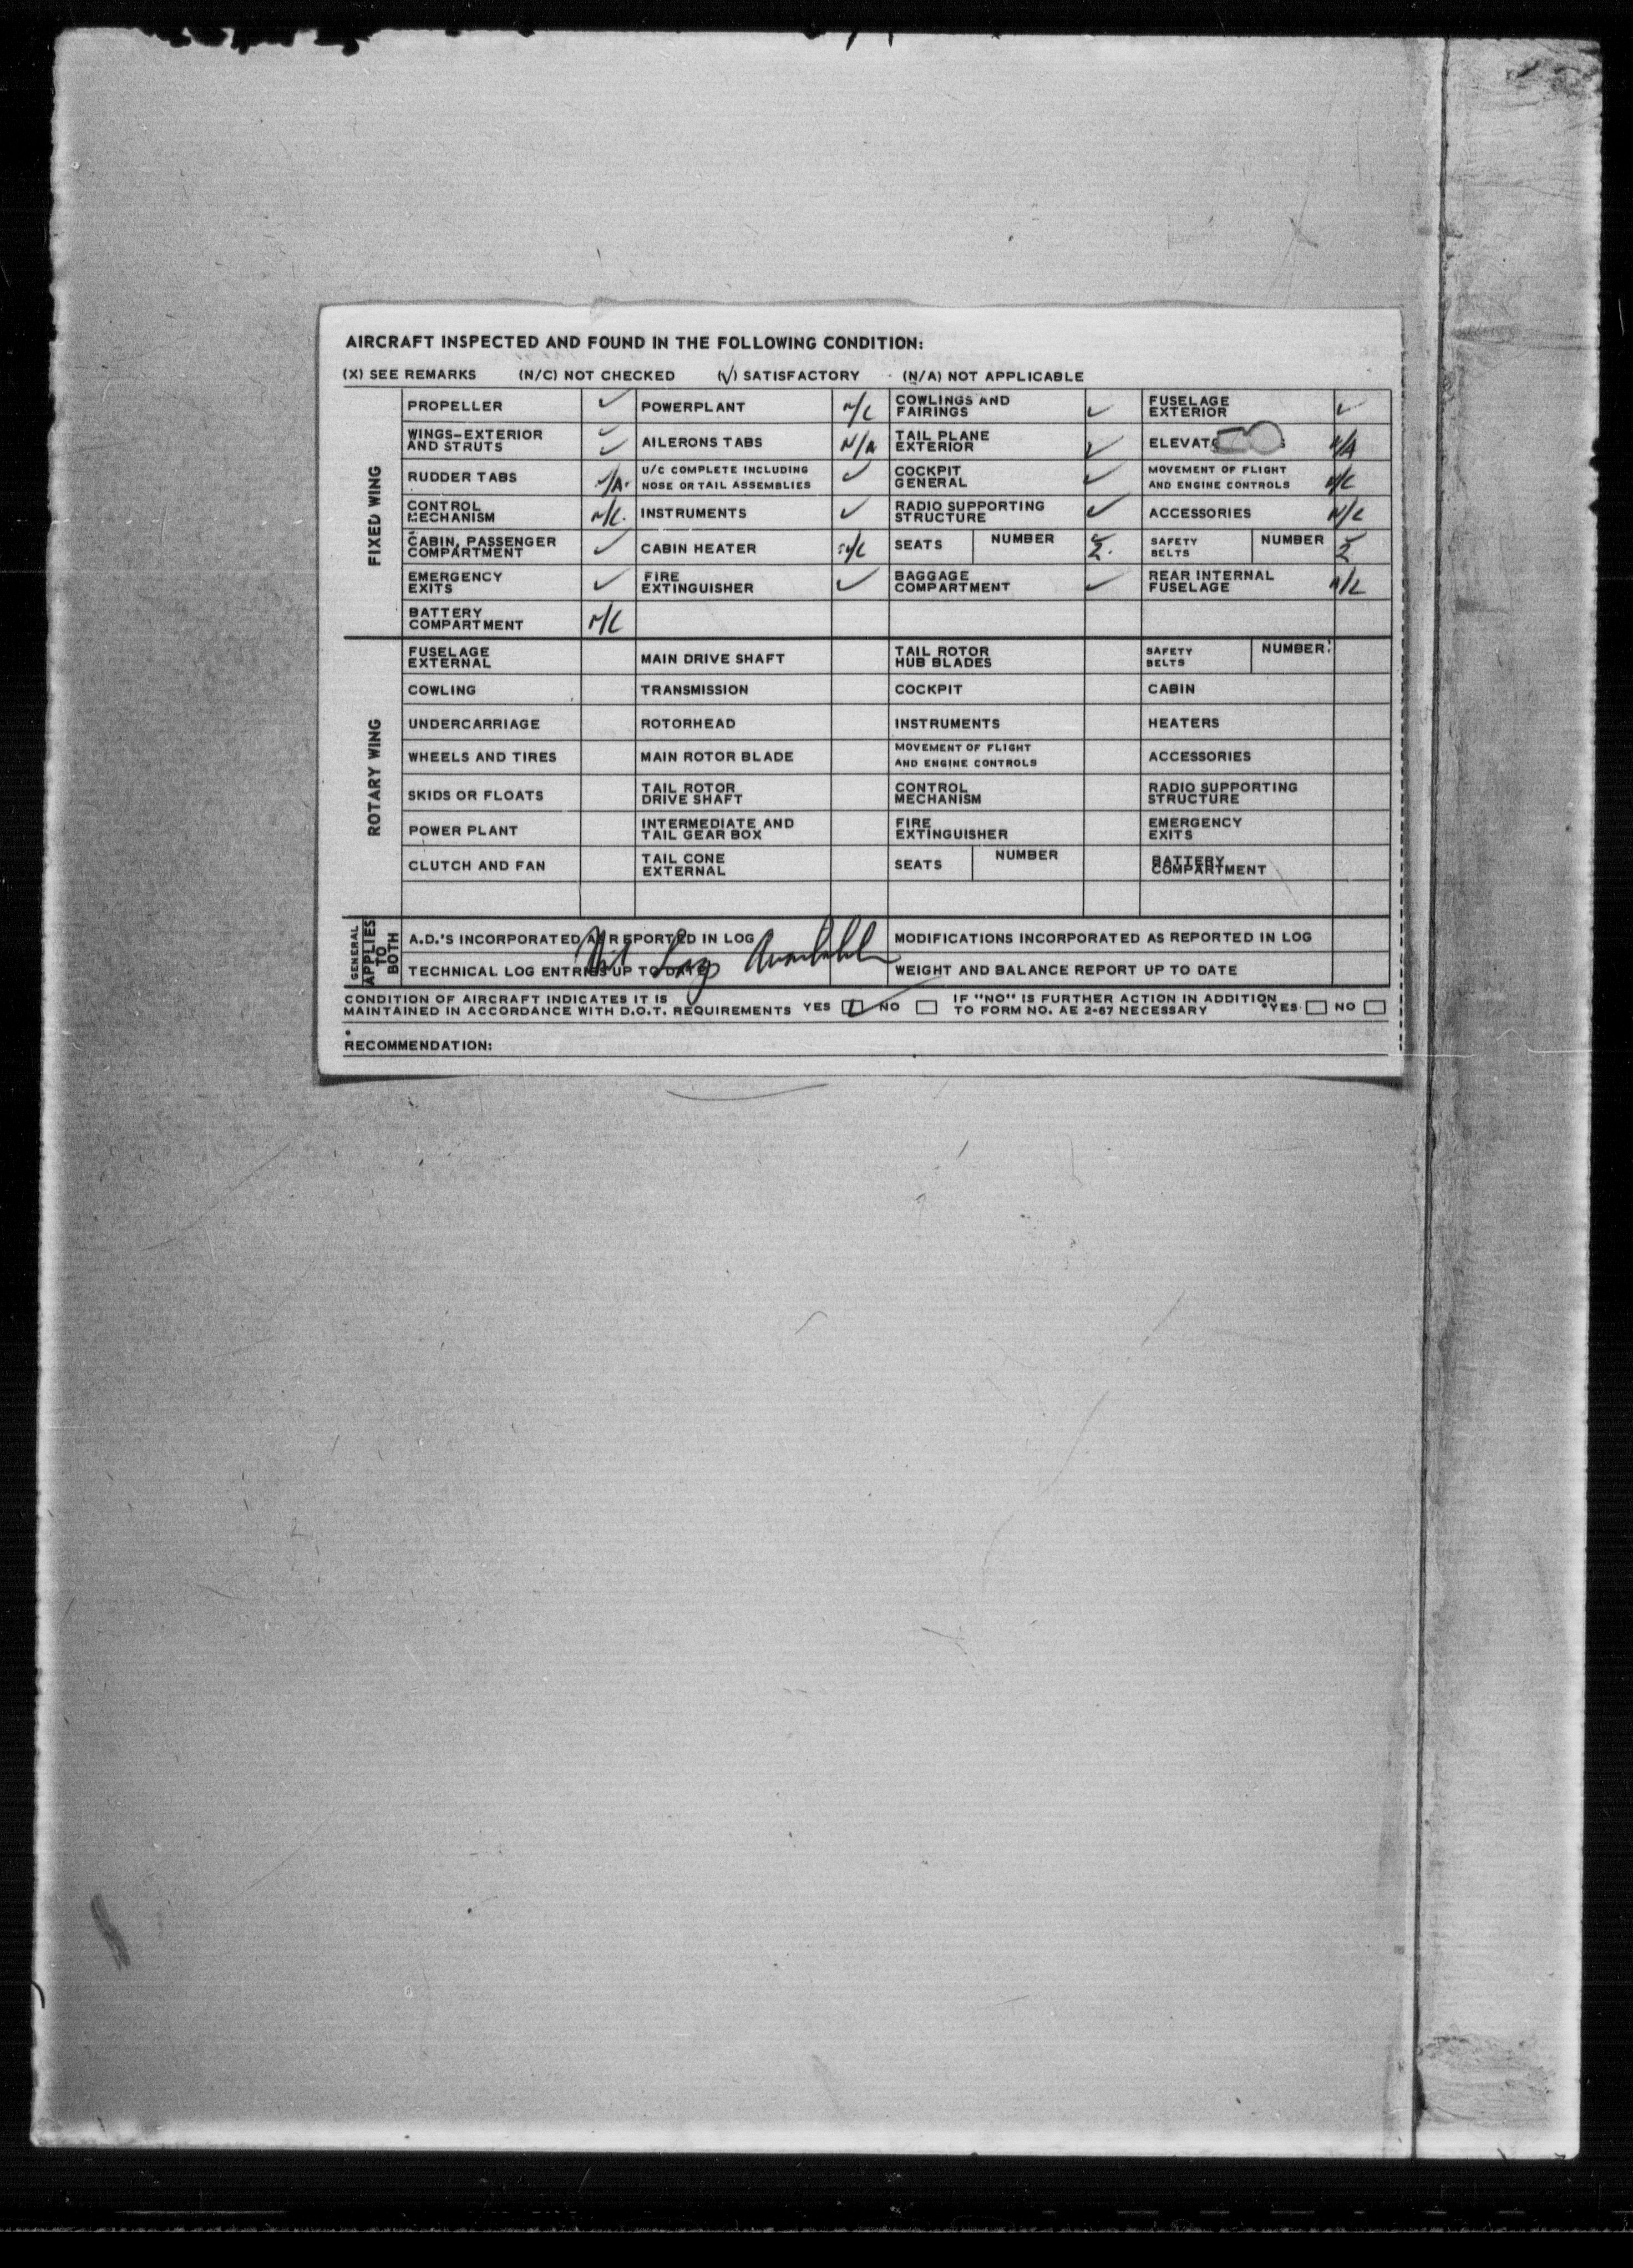 AIRCRAFT INSPECTED AND FOUND IN THE FOLLOWING CONDITION:
(X) SEE REMARKS (N/C) NOT CHECKED (✓) SATISFACTORY (N/A) NOT APPLICABLE
FIXED WING
PROPELLER ✓ POWERPLANT N/C COWLINGS AND FAIRINGS ✓ FUSELAGE EXTERIOR ✓
WINGS-EXTERIOR AND STRUTS ✓ ✓ AILERONS TABS N/A TAIL PLANE EXTERIOR ✓ N/A
RUDDER TABS N/A. U/C COMPLETE INCLUDING NOSE OR TAIL ASSEMBLIES ✓ COCKPIT GENERAL ✓ MOVEMENT OF FLIGHT AND ENGINE CONTROLS N/C
CONTROL MECHANISM N/C. INSTRUMENTS ✓ RADIO SUPPORTING STRUCTURE ✓ ACCESSORIES N/C
CABIN, PASSENGER COMPARTMENT ✓ CABIN HEATER N/C SEATS NUMBER ✓ 2. SAFETY BELTS NUMBER ✓ 2
EMERGENCY EXITS ✓ FIRE EXTINGUISHER ✓ BAGGAGE COMPARTMENT ✓ REAR INTERNAL FUSELAGE N/C
BATTERY COMPARTMENT N/C
ROTARY WING
FUSELAGE EXTERNAL MAIN DRIVE SHAFT TAIL ROTOR HUB BLADES SAFETY BELTS NUMBER
COWLING TRANSMISSION COCKPIT CABIN
UNDERCARRIAGE ROTORHEAD INSTRUMENTS HEATERS
WHEELS AND TIRES MAIN ROTOR BLADE MOVEMENT OF FLIGHT AND ENGINE CONTROLS ACCESSORIES
SKIDS OR FLOATS TAIL ROTOR DRIVE SHAFT CONTROL MECHANISM RADIO SUPPORTING STRUCTURE
POWER PLANT INTERMEDIATE AND TAIL GEAR BOX FIRE EXTINGUISHER EMERGENCY EXITS
CLUTCH AND FAN TAIL CONE EXTERNAL SEATS NUMBER BATTERY COMPARTMENT
GENERAL APPLIES TO BOTH
A.D.'S INCORPORATED AS REPORTED IN LOG MODIFICATIONS INCORPORATED AS REPORTED IN LOG
Nil Log Available
TECHNICAL LOG ENTRIES UP TO DATE WEIGHT AND BALANCE REPORT UP TO DATE
CONDITION OF AIRCRAFT INDICATES IT IS MAINTAINED IN ACCORDANCE WITH D.O.T. REQUIREMENTS YES ✓ NO IF "NO" IS FURTHER ACTION IN ADDITION TO FORM NO. AE 2-67 NECESSARY *YES NO
* RECOMMENDATION: